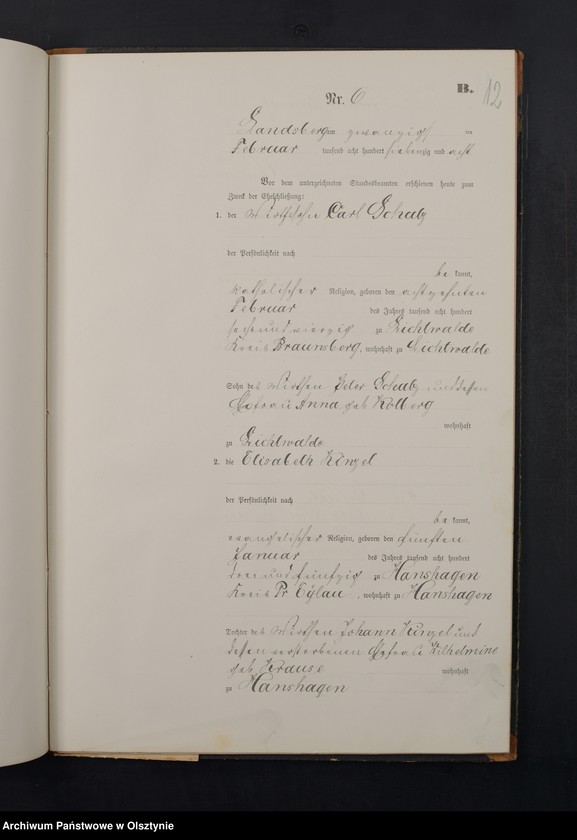 B.
12
Nr. 6
Landsberg am zwanzigsten
Februar tausend acht hundert siebenzig und acht
Vor dem unterzeichneten Standesbeamten erschienen heute zum
Zweck der Eheschließung:
1. der Wirthssohn Carl Schulz
der Persönlichkeit nach
be kannt,
katholischer Religion, geboren den achtzehnten
Februar des Jahres tausend acht hundert
sechs und vierzig zu Lichtwalde
Kreis Braunsberg, wohnhaft zu Lichtwalde
Sohn des Wirthen Peter Schulz und dessen
Ehefrau Anna geb. Kolberg
wohnhaft
zu Lichtwalde
2. die Elisabeth
der Persönlichkeit nach
be kannt,
evangelischer Religion, geboren den fünften
Januar des Jahres tausend acht hundert
drei und fünfzig zu Hanshagen
Kreis Pr Eylau, wohnhaft zu Hanshagen
Tochter des Wirthen Johann und
dessen verstorbenen Ehefrau Wilhelmine
geb. Krause wohnhaft
zu Hanshagen
Archiwum Państwowe w Olsztynie